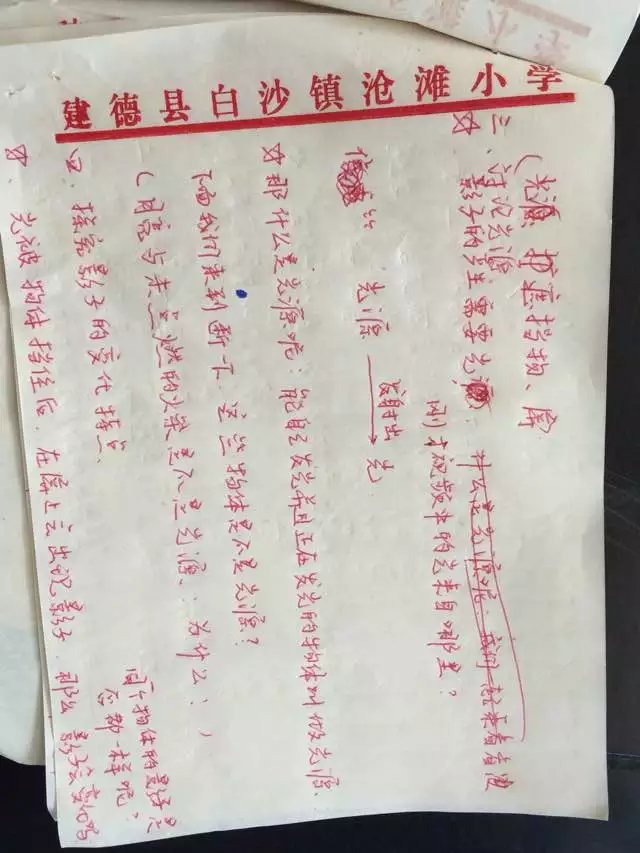 建德县白沙镇沧滩小学
(光源、挡光物、屏
三、讨论光源
☆影子的产生需要光源。什么是光源呢?我们一起来看看
刚才视频中的光来自哪里?
光源 发射出→ 光
☆那什么是光源呢:能自己发光并且正在发光的物体叫做光源.
下面我们来判断一下、这些物体是不是光源?
(月亮与未点燃的火柴是不是光源、为什么:)
四、探究影子的变化特点、
☆、光被物体挡住后、在屏上会出现影子、那么影子会变化吗
同个物体的影子是
否都一样呢?